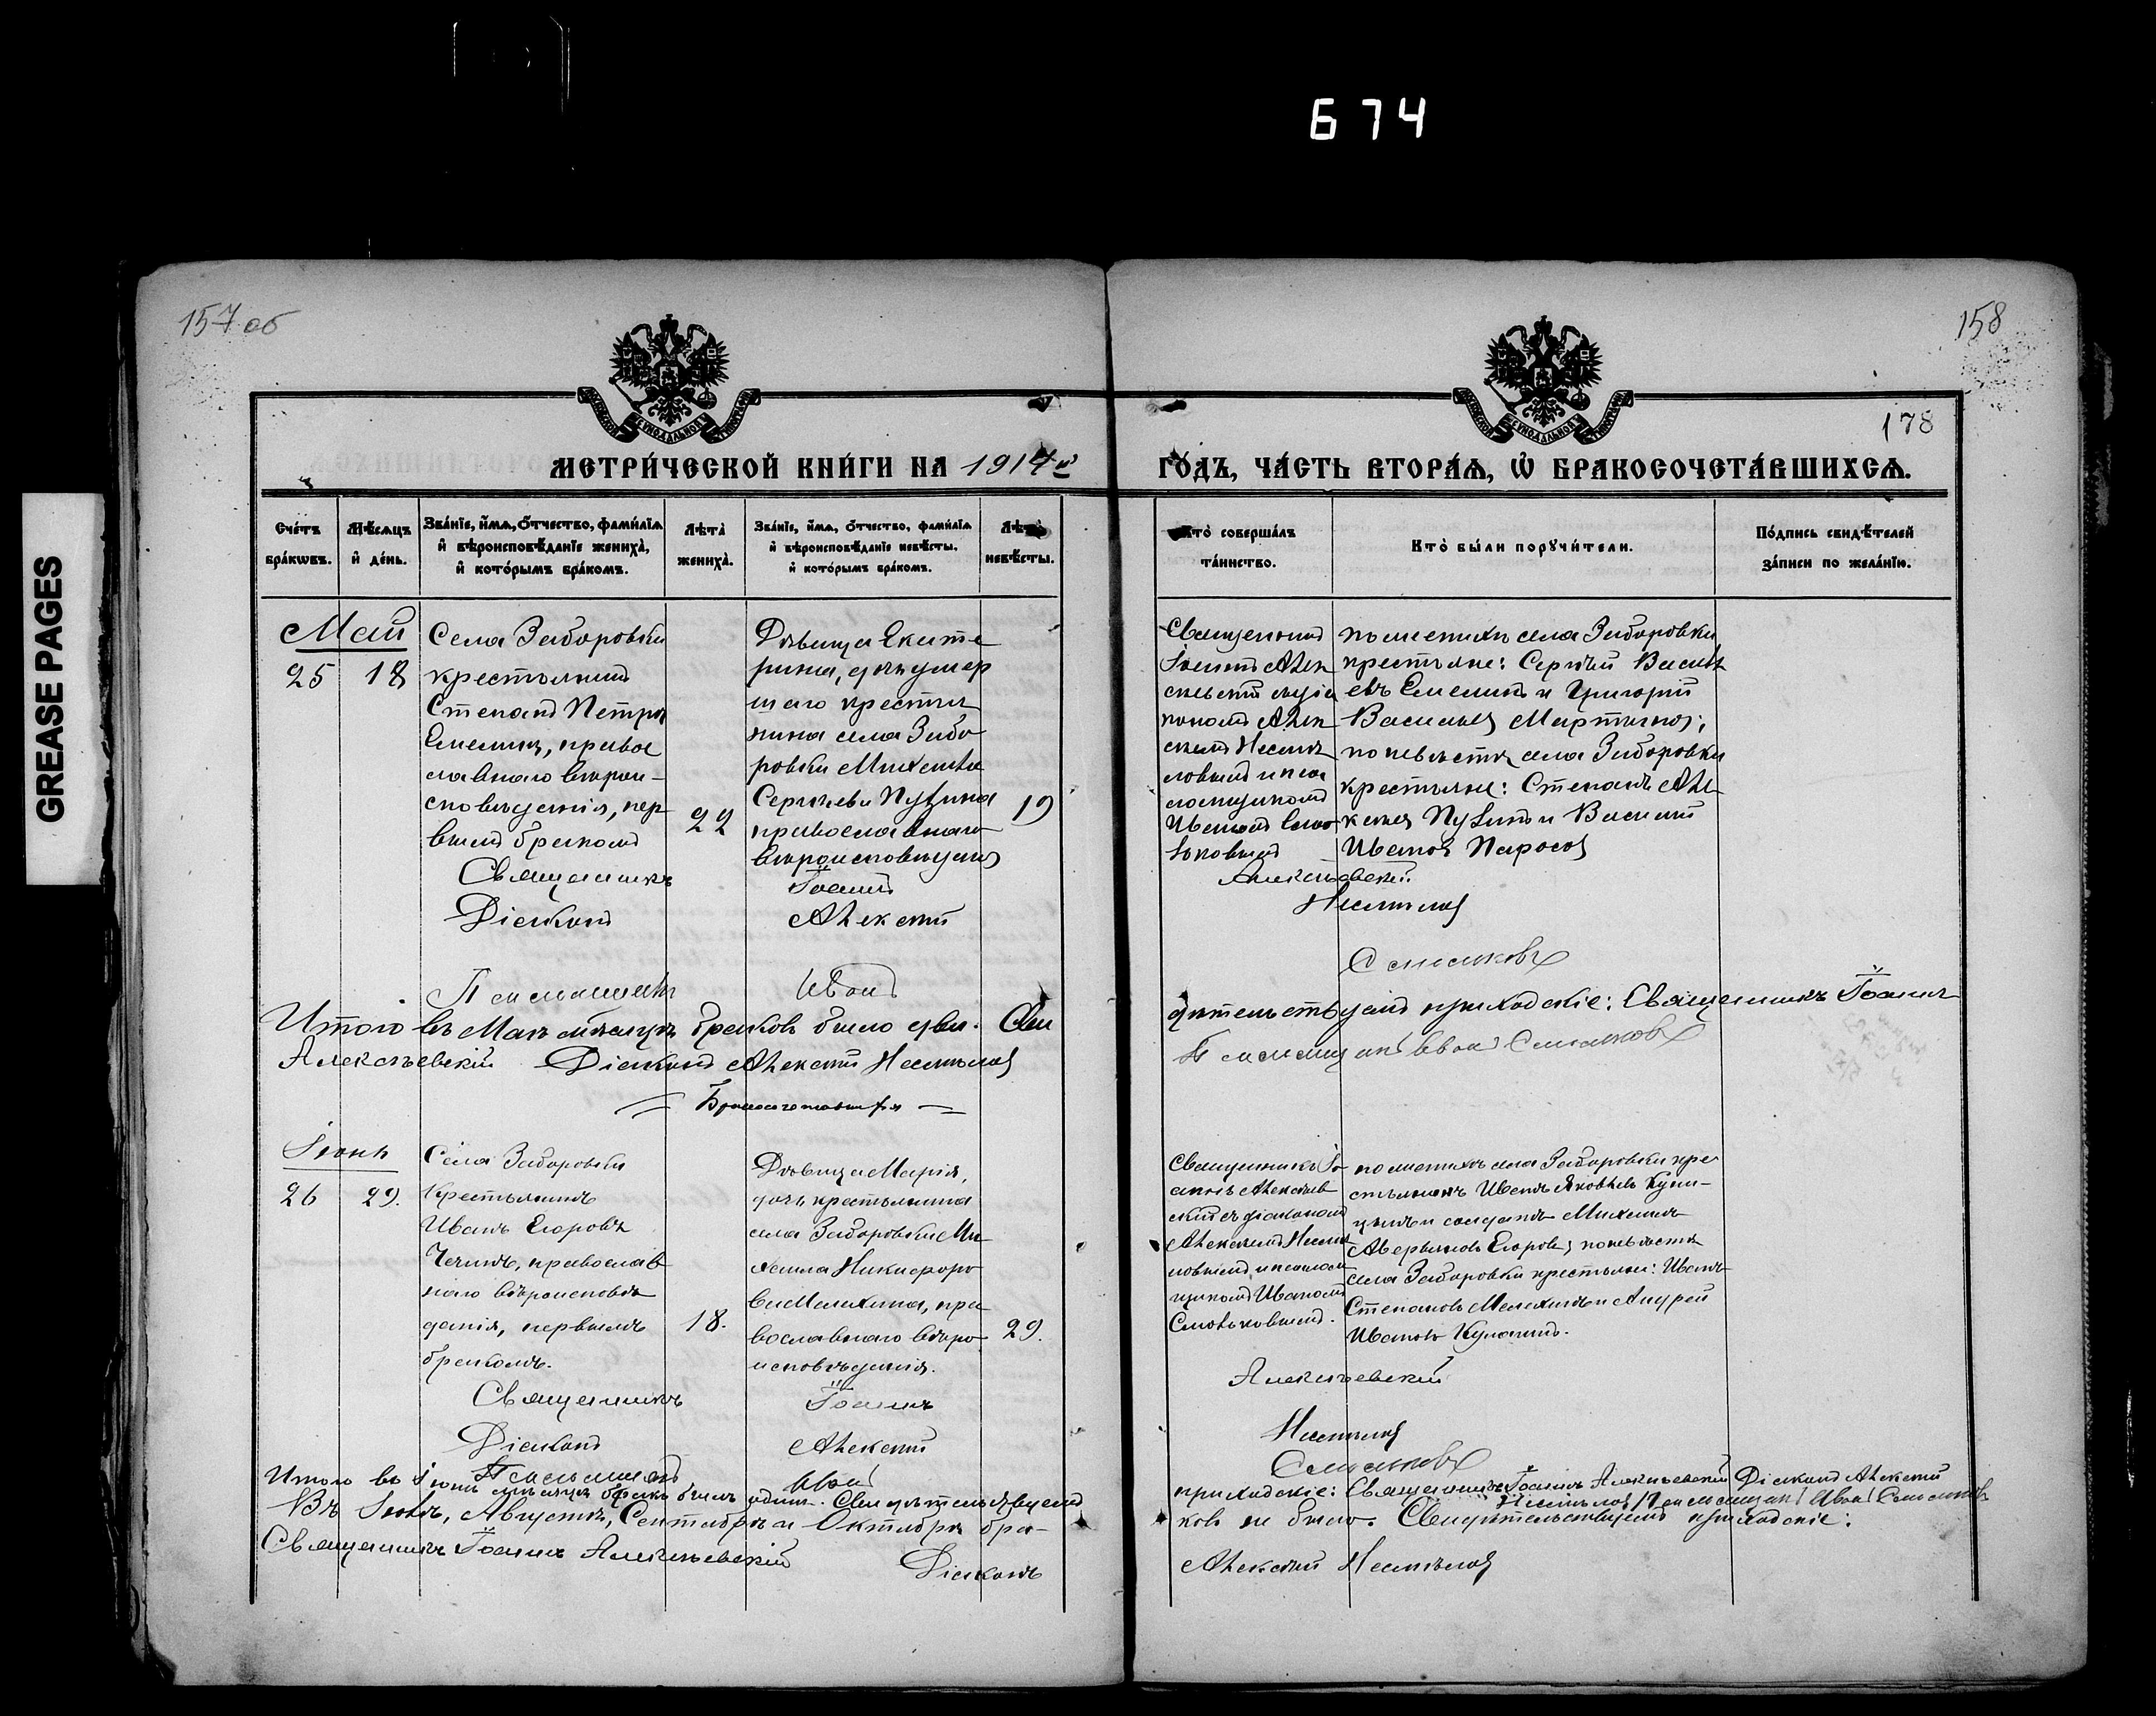 674
GREASE PAGES
157 об
158
178
МЕТРИ́ЧЕСКОЙ КНИ́ГИ НА 1917 й
ГО́ДЪ, ЧА́СТЬ ВТОРА́Ѧ, Ѡ҆ БРАКОСОЧЕТА́ВШИХСѦ.
Сче́тъ бра́кѡвъ.
Мѣ́сѧцъ и҆ де́нь.
Зва́нїе, и҆́мѧ, ѻ҆́тчество, фами́лїѧ
и҆ вѣроисповѣ́данїе жениха̀,
и҆ кото́рымъ бра́комъ.
Лѣта̀ жениха̀.
Зва́нїе, и҆́мѧ, ѻ҆́тчество, фами́лїѧ
и҆ вѣроисповѣ́данїе невѣ́сты,
и҆ кото́рымъ бра́комъ.
Лѣта̀ невѣ́сты.
Кто̀ соверша́лъ та́инство.
Кто̀ бы́ли порꙋчи́тели.
По́дпись свидѣ́телей
за́писи по жела́нїю.
Май
25
18
Села Заборовки
крестьянинъ
Степанъ Петровъ
Емелинъ, право
славнаго вѣрои-
сповѣданія, пер-
вымъ бракомъ
22
Дѣвица Екате
рина, дочь умер
шаго крестья
нина села Забо
ровки Михаила
Сергѣева Пузина
православнаго
вѣроисповѣданія
19
Священникъ
Іоаннъ Алек
сѣевскій съ діа
кономъ Алек
сѣемъ Несмѣ
ловымъ и пса
ломщикомъ
Иваномъ Смо
ляковымъ
по женихѣ села Заборовки
крестьяне: Сергѣй Василь
евъ Емелинъ и Григорій
Васильевъ Мартыновъ;
по невѣстѣ села Заборовки
крестьяне: Степанъ Але
ксѣевъ Пузинъ и Василій
Ивановъ
Священникъ Іоаннъ Алексѣевскій
Діаконъ Алексѣй Несмѣловъ
Псаломщикъ Иванъ Смоляковъ
Итого въ Маѣ мѣсяцѣ браковъ было два. Сви
дѣтельствуемъ приходскіе: Священникъ Іоаннъ
Алексѣевскій Діаконъ Алексѣй Несмѣловъ
Псаломщикъ Иванъ Смоляковъ
Бракосочетавшихся
Іюнь
26
29.
Села Заборовки
Крестьянинъ
Иванъ Егоровъ
православ
наго вѣроисповѣ
данія, первымъ
бракомъ.
18.
Дѣвица Марія,
дочь крестьянина
села Заборовки Ми
хаила Никифоро
ва Мелихина, пра
вославнаго вѣро
исповѣданія.
29.
Священникъ Іо
аннъ Алексѣев
скій съ діакономъ
Алексѣемъ Несмѣ
ловымъ и псалом
щикомъ Иваномъ
Смоляковымъ.
по женихѣ села Заборовки кре
стьянинъ Иванъ Яковлевъ
и солдатъ Михаилъ
Аверьяновъ Егоровъ; по невѣстѣ
села Заборовки крестьяне: Иванъ
Степановъ Мелихинъ и Андрей
Ивановъ
Священникъ Іоаннъ Алексѣевскій
Діаконъ Алексѣй Несмѣловъ
Псаломщикъ Иванъ Смоляковъ
Итого въ Іюнѣ мѣсяцѣ бракъ былъ одинъ. Свидѣтельствуемъ
приходскіе: Священникъ Іоаннъ Алексѣевскій Діаконъ Алексѣй
Несмѣловъ Псаломщикъ Иванъ Смоляковъ
Въ Іюлѣ, Августѣ, Сентябрѣ и Октябрѣ бра-
ковъ не было. Свидѣтельствуемъ приходскіе:
Священникъ Іоаннъ Алексѣевскій Діаконъ
Алексѣй Несмѣловъ